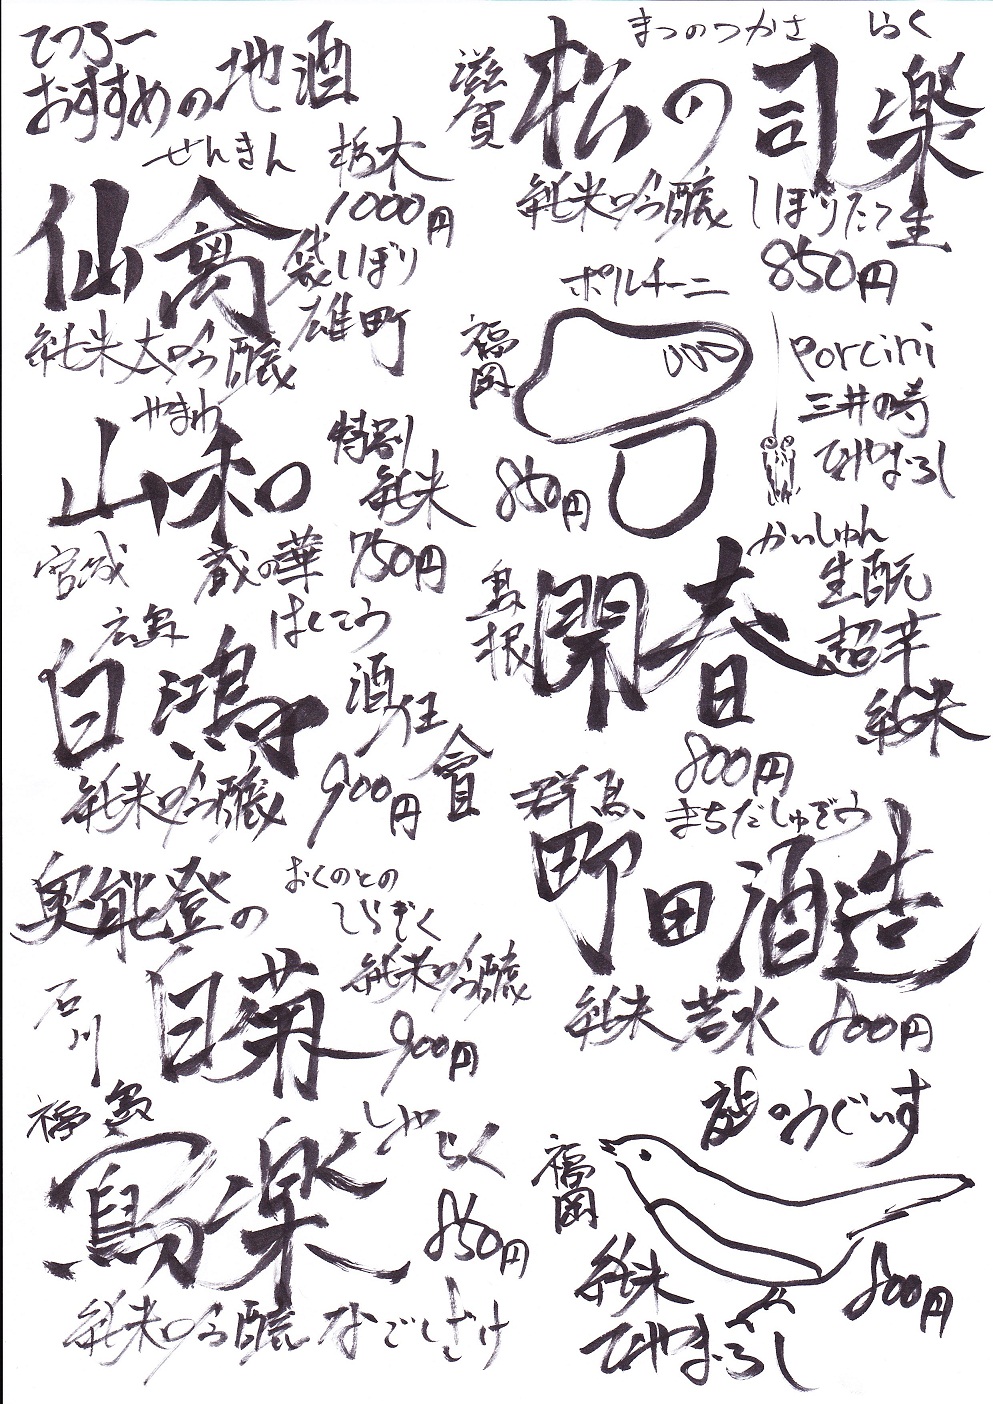 てつろー
おすすめの地酒
せんきん 栃木
仙禽
1000円
袋しぼり
雄町
純米大吟醸
やまわ
山和
特別
純米
宮城 蔵の華 750円
広島 はくこう
白鴻
酒狂會
純米吟醸 900円
奥能登の
おくのとの
しらぎく
石川
白菊
純米吟醸
900円
福島
しゃらく
寫楽
850円
純米吟醸 なごしざけ
まつのつかさ らく
滋賀
松の司 楽
純米吟醸 しぼりたて生
850円
ポルチーニ
福岡
porcini
三井の寿
ひやおろし
850円
かいしゅん
島根
開春
生酛
超辛
純米
800円
群馬
まちだしゅぞう
町田酒造
純米 若水 800円
のうぐいす
福岡
純米
ひやおろし
800円